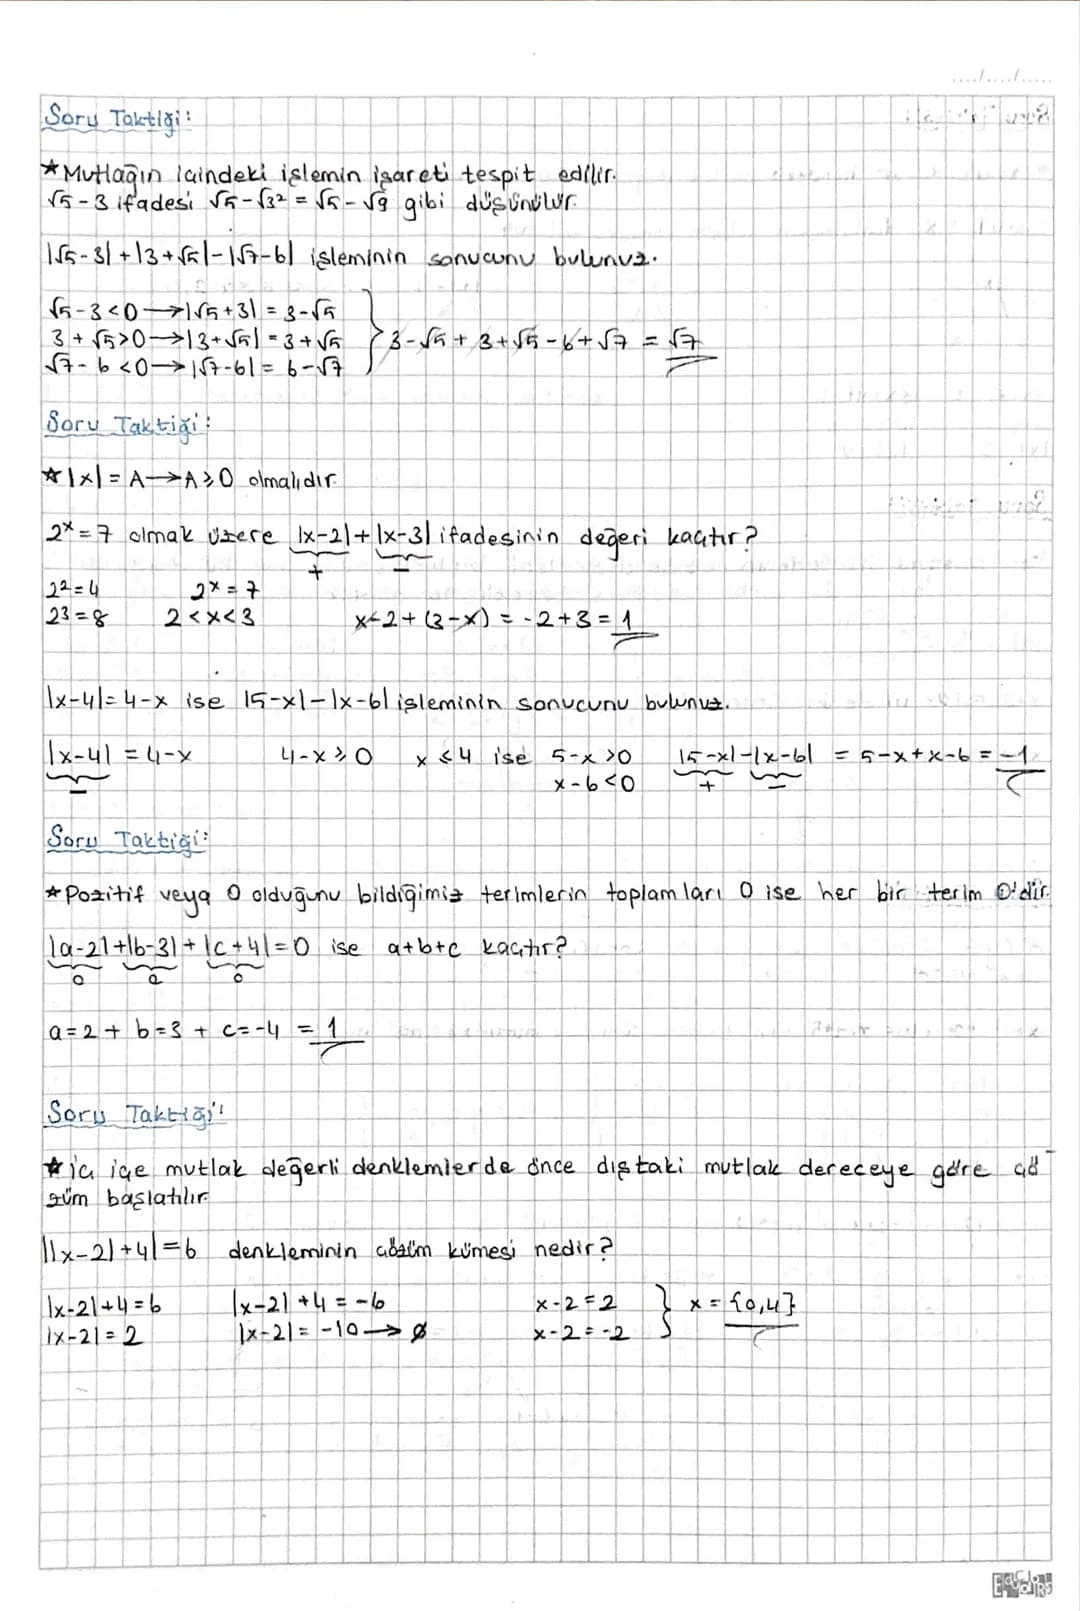 Soru Taktiği:
★Mutlağın içindeki işlemin işareti tespit edilir.
√5-3 ifadesi √5-√3² = √5-√9 gibi düşünülür.
|√5-3|+|3+√5|-|√7-6| işleminin sonucunu bulunuz.
√5-3<0→|√5+3| = 3-√5
3+√5>0→|3+√5| = 3+√5 } 3-√5+3+√5-6+√7 = √7
√7-6<0→|√7-6| = 6-√7
Soru Taktiği:
★|x| = A→A≥0 olmalıdır.
2ˣ=7 olmak üzere |x-2|+|x-3| ifadesinin değeri kaçtır?
+ -
2²=4 2ˣ=7
2³=8 2<x<3 x-2+(3-x) = -2+3 = 1
|x-4|=4-x ise |5-x|-|x-6| işleminin sonucunu bulunuz.
|x-4| = 4-x 4-x≥0 x≤4 ise 5-x>0 |5-x|-|x-6| = 5-x+x-6 = -1
- x-6<0 + -
Soru Taktiği:
★Pozitif veya 0 olduğunu bildiğimiz terimlerin toplamları 0 ise her bir terim 0'dır.
|a-2|+|b-3|+|c+4|=0 ise a+b+c kaçtır?
0 0 0
a=2 + b=3 + c=-4 = 1
Soru Taktiği:
★iç içe mutlak değerli denklemlerde önce dıştaki mutlak dereceye göre çö
züm başlatılır.
||x-2|+4|=6 denkleminin çözüm kümesi nedir?
|x-2|+4=6 |x-2|+4=-6 x-2=2 } x = {0,4}
|x-2|=2 |x-2|=-10→∅ x-2=-2